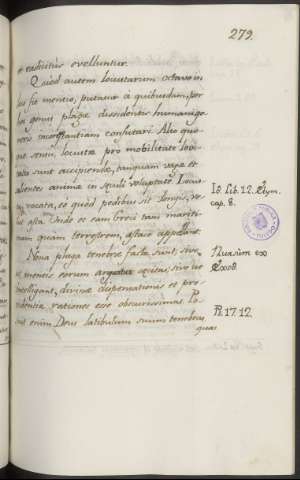 279.
et radicitus evelluntur.
Quòd autem locustarum octavo in
loco fit mentio, putatur à quibusdam, per
hoc genus plagæ dissidentis humani ge-
neris inconstantiam confutari. Alio quo-
que sensu, locustæ pro mobilitate levi-
tatis sunt accipiendæ, tanquam vagæ et
salientes animæ in sæculi voluptates. Locus-
ta vocata, eò quòd pedibus sit longis, ve-
lut asta. Unde et eam Græci tam mariti-
mam quam terrestrem, astaco appellant.
Nona plaga tenebræ factæ sunt, sive
ut mentis eorum arguatur cæcitas, sive ut
intelligant, divinæ dispensationis et pro-
videntiæ rationes esse obscurissimas. Po-
suit enim Deus latibulum suum tenebras,
quas
Is. Lib. 12. Etym.
cap. 8.
ex
Exod.
Ps. 17. 12.